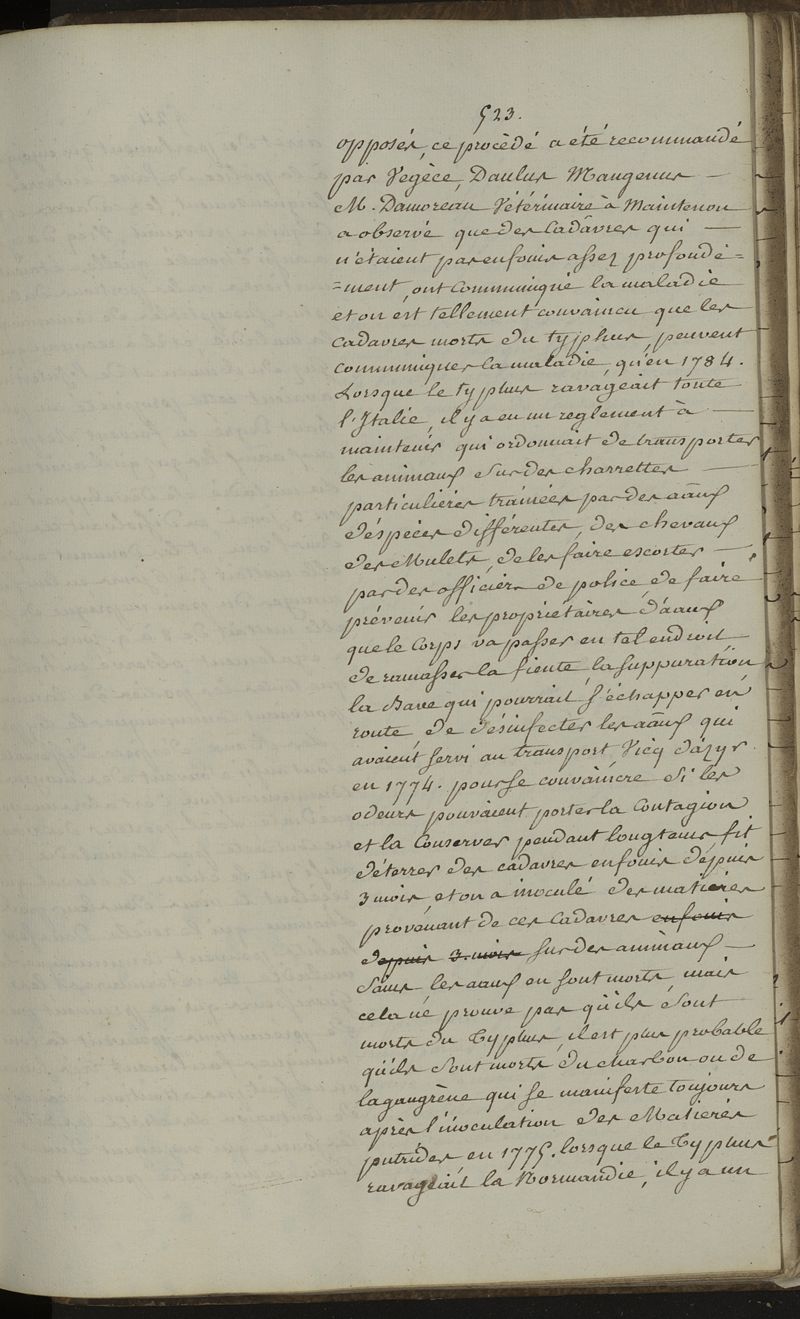 523.
opposés, ce procédé a été recommandé
par Vegèce, Paulus Mangenus —
M. Damoreau Vétérinaire à Maintenon
a observé que des Cadâvres qui —
n'étaient pas enfouis assez profondé=
=ment, ont communiqué la maladie
et on est tellement convaincu que les
cadavres morts du typhus, peuvent
communiquer la maladie, qu'en 1784.
Lorsque le typhus ravageait toute
l'Italie, il y a eu un reglement à —
maintenir qui ordonnait de transporter
les animaux sur des charrettes —
particulières trainées par des aāux
d'éspèces différentes, des chevaux
des Mulets, de les faire escorter —
par des officiers de police, de faire
prévenir les propriétaires d'aaux
que le Corps va passer en tel endroit
de ramasser la fiente la suppuration
la Bave qui pourrait s'échapper en
route, de désinfecter les aāux qui
avaient servi au transport, Vicq d'azyr.
en 1774. pour se convaincre si les
odeurs pouvaient porter la Contagion
et la Conserver pendant longtems fit
déterrer des cadavres enfouis dépuis
3 mois, et on a inoculé des matières
provenant de ces Cadavres enfouis
depuis 3. mois sur des animaux —
sains les aaux en sont morts, mais
cela ne prouve pas qu'ils sont
morts du Typhus, il est plus probable
qu'ils sont morts du charbon ou de
la gangrène qui se manifeste toujours
après l'inoculation des Matières
putrides en 1775. lorsque le Typhus
ravageait la Normandie, il y a un